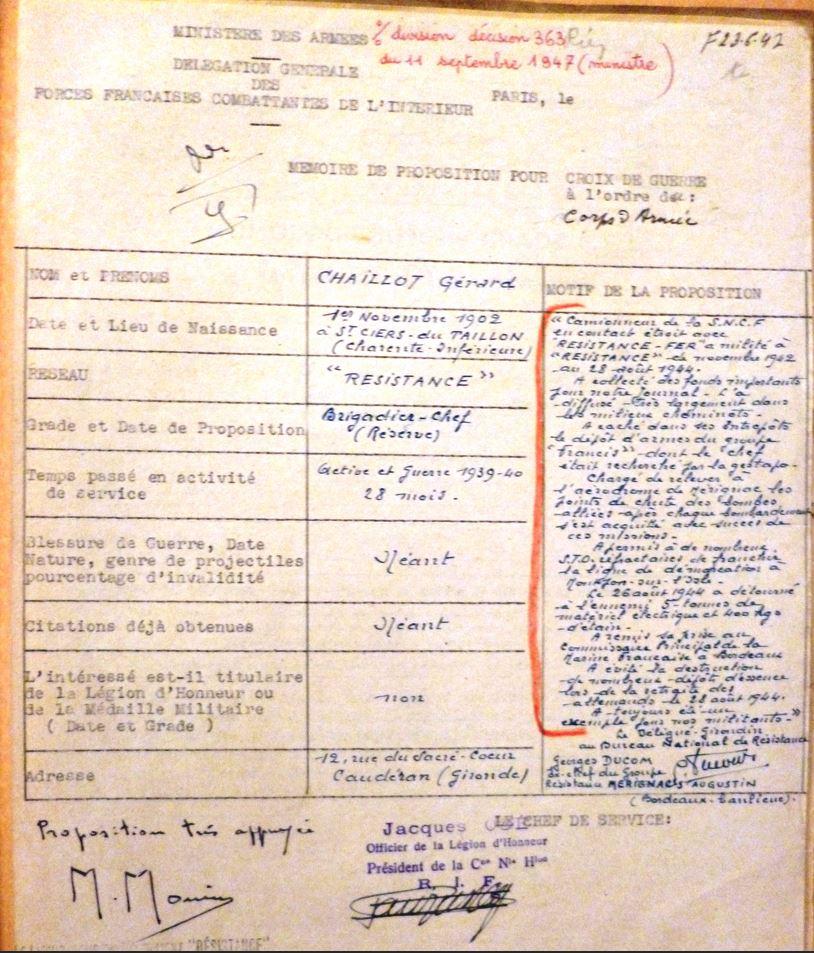 MINISTERE DES ARMEES % division décision 363
du 11 septembre 1947 (ministre)
F23.6.47
DELEGATION GENERALE
DES
FORCES FRANCAISES COMBATTANTES DE L'INTERIEUR
PARIS, le
MEMOIRE DE PROPOSITION POUR CROIX DE GUERRE
à l'ordre de :
Corps d'Armée
NOM et PRENOMS
CHAILLOT Gérard
Date et Lieu de Naissance
1er Novembre 1902
à St CIERS-du TAILLON
(Charente-Inférieure)
RESEAU
"RESISTANCE"
Grade et Date de Proposition
Brigadier-Chef
(Réserve)
Temps passé en activité
de service
Active et Guerre 1939-40
28 mois.
Blessure de Guerre, Date
Nature, genre de projectiles
pourcentage d'invalidité
Néant
Citations déjà obtenues
Néant
L'intéressé est-il titulaire
de la Légion d'Honneur ou
de la Médaille Militaire
( Date et Grade )
non
Adresse
12, rue du Sacré-Coeur
Caudéran (Gironde)
MOTIF DE LA PROPOSITION
"Camionneur de la S.N.C.F
en contact étroit avec
"RESISTANCE-FER" a milité à
"RESISTANCE" de novembre 1942
au 28 août 1944.
A collecté des fonds importants
pour notre journal - L'a
diffusé très largement dans
les milieux cheminots.
A caché dans ses entrepôts
le dépôt d'armes du groupe
"Francis" dont le chef
était recherché par la gestapo.
Chargé de relever à
l'aérodrome de Mérignac les
points de chute des bombes
alliées après chaque bombardement
s'est acquitté avec succès de
ces missions.
A permis à de nombreux
S.T.O. réfractaires de franchir
la ligne de démarcation à
Montpon-sur-l'Isle.
Le 26 août 1944 a détourné
à l'ennemi 5 tonnes de
matériel électrique et 400 kgs
d'étain.
A remis sa prise au
Commissaire Principal de la
Marine Française à Bordeaux
A évité la destruction
de nombreux dépôts d'essence
lors de la retraite des
allemands le 28 août 1944.
A toujours été un
exemple pour nos militants."
Le Délégué Girondin
au Bureau National de Résistance
Georges DUCOM
Ex-chef du Groupe
Résistance MERIGNAC St AUGUSTIN
(Bordeaux-banlieue).
Proposition très appuyée
LE CHEF DE SERVICE:
Jacques
Officier de la Légion d'Honneur
Président de la Con Nle Hque
R. I. F.
"RÉSISTANCE"